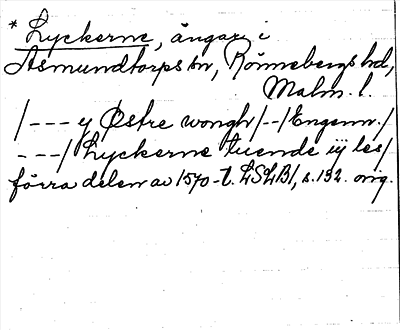 * Lyckerne, ängar i
Asmundtorps sn, Rönnebergs hd,
Malm. l.
/--- y Østre wongh/--/Engenn./
---/ Lyckerne tuende iij les/
förra delen av 1570-t. LSLB1, s. 132. orig.